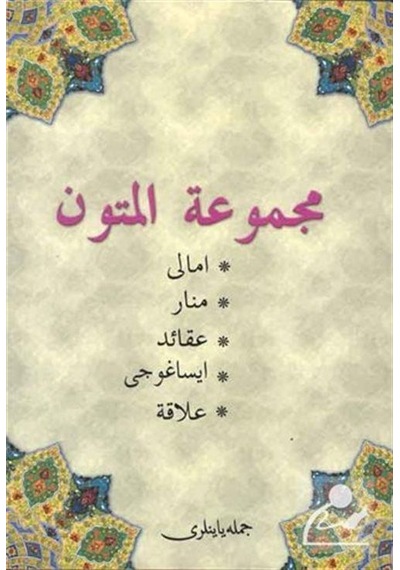 مجموعة المتون
* امالى
* منار
* عقائد
* ايساغوجى
* علاقة
جمله ياينلرى